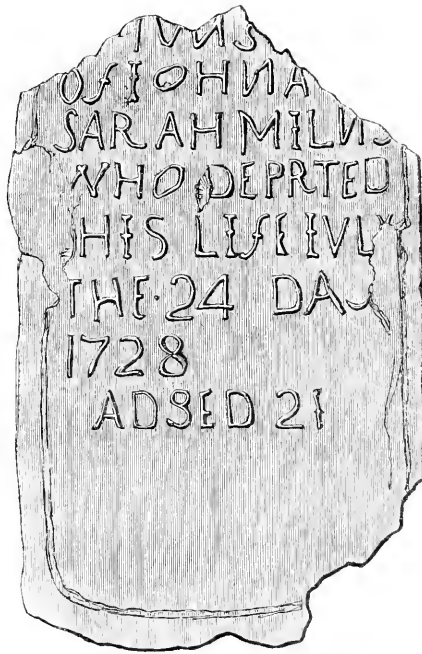 OF IOHN A
SARAH MILNS
WHO DEPRTED
HIS LIFE IVLY
THE·24 DAY
1728
ADSED 21